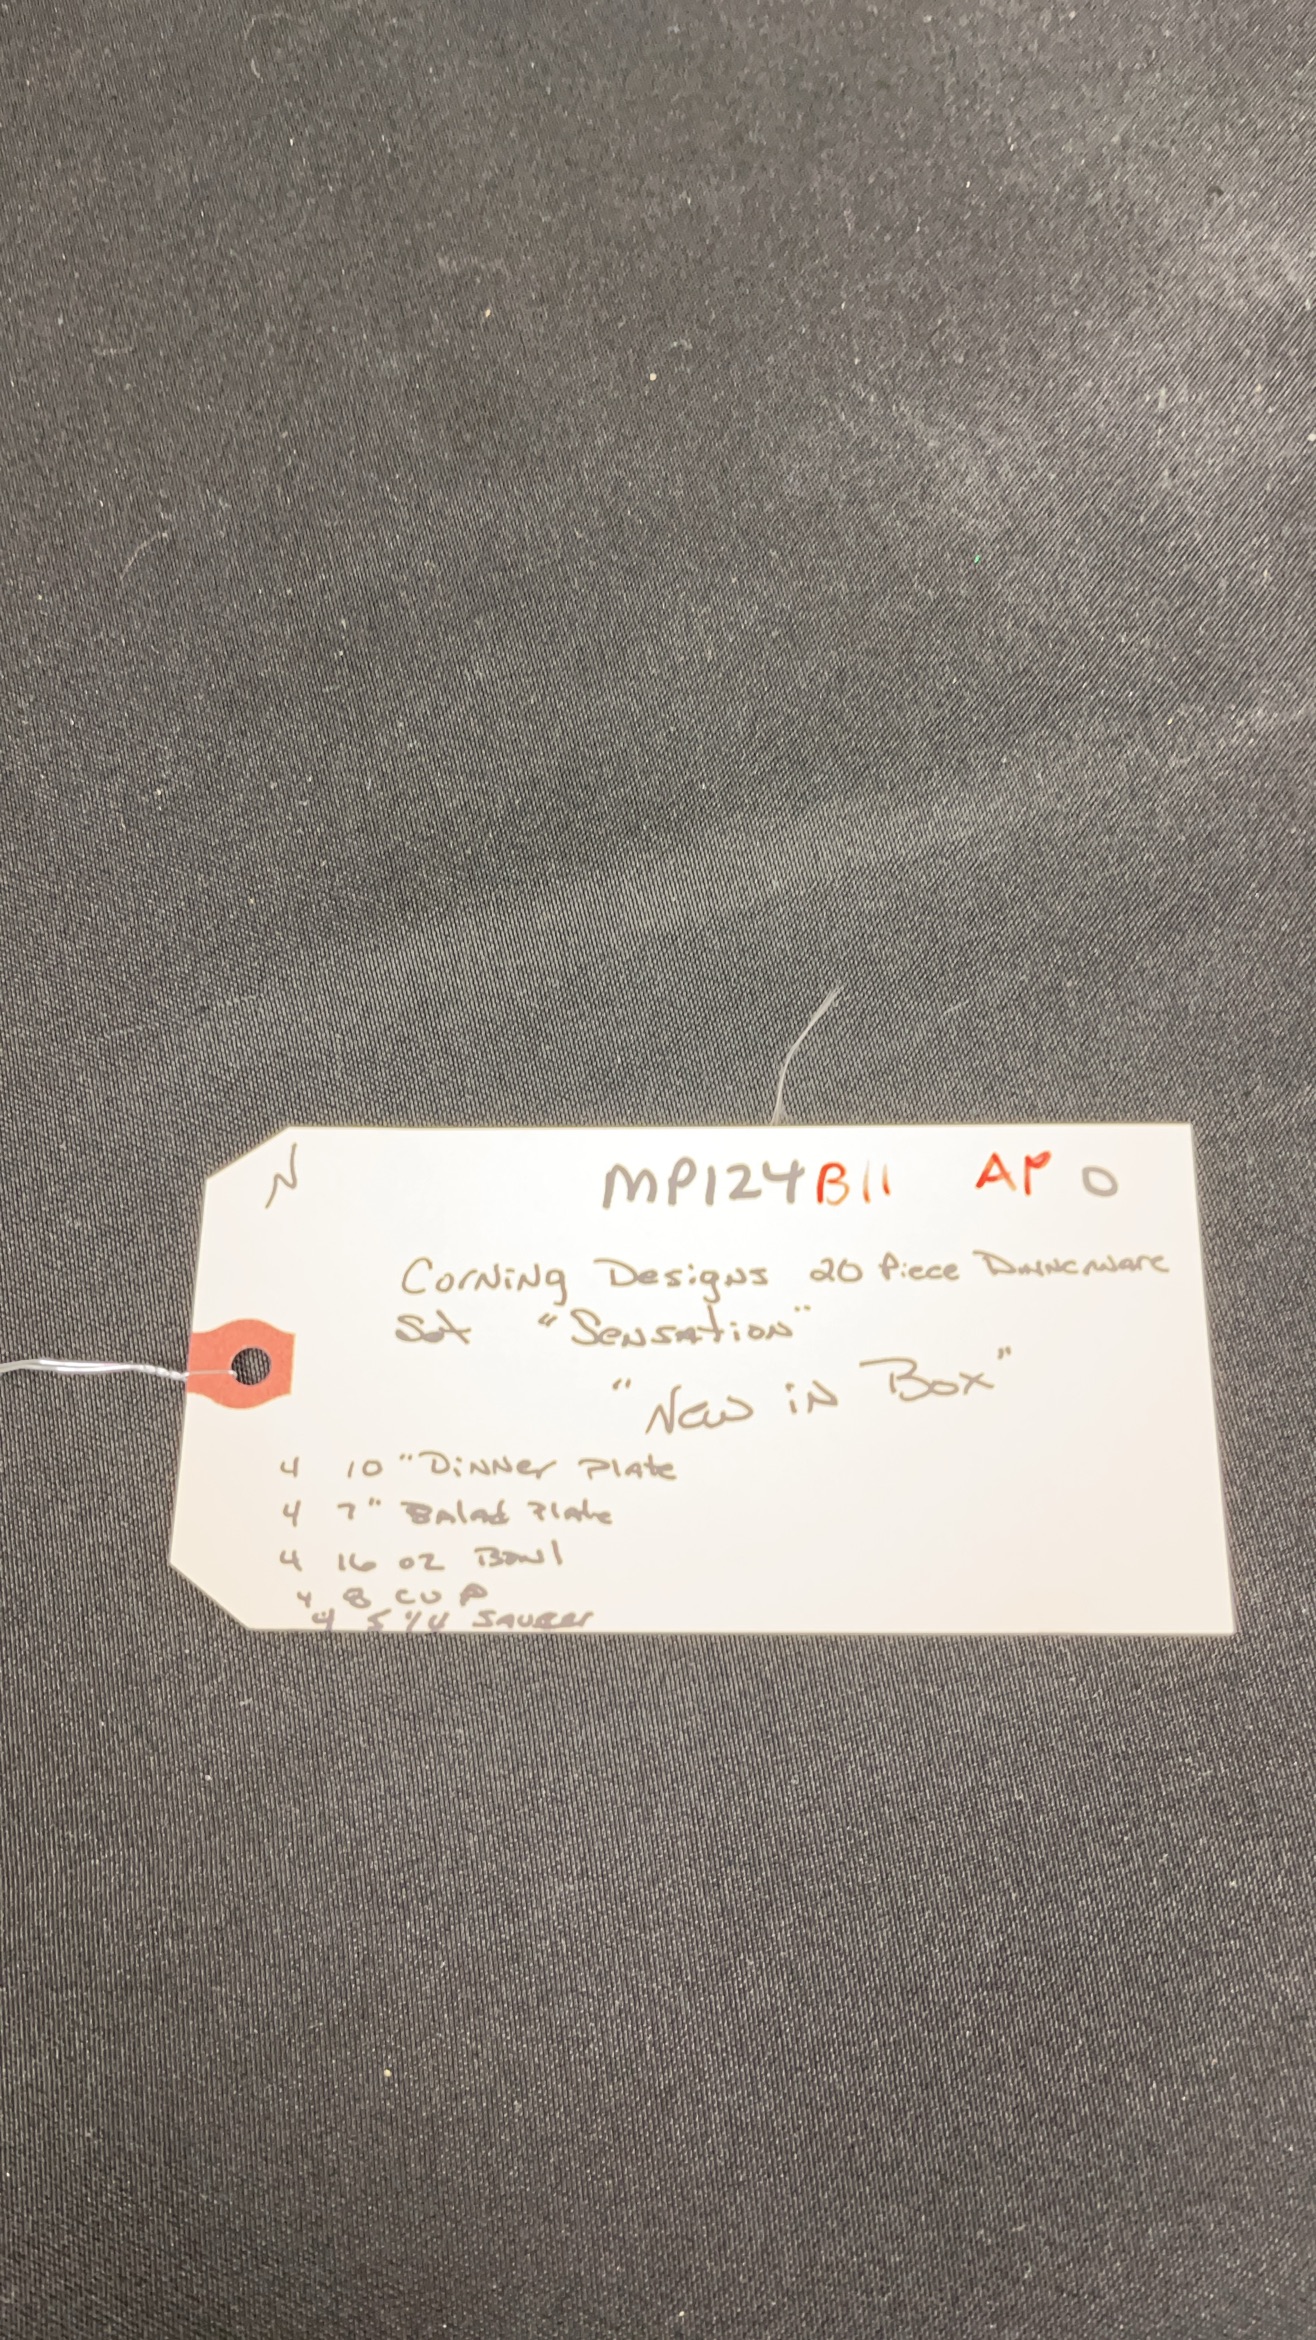 N MP124 B11 AP O
Corning Designs 20 Piece Dinnerware
Set "Sensation"
"New in Box"
4 10" Dinner Plate
4 7" Salad Plate
4 16 oz Bowl
4 8 cup
4 5 1/4 Saucer